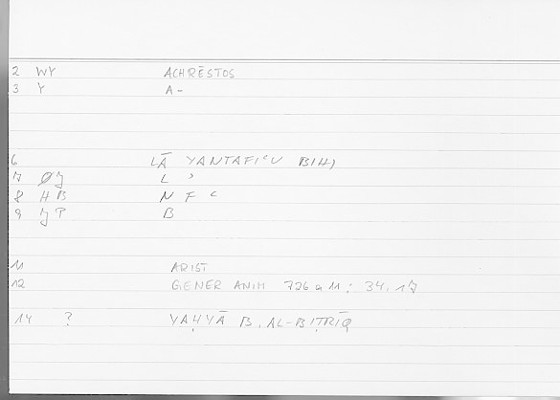 2 WY ACHRĒSTOS
3 Y A-
6 LĀ YANTAFIʿU BIHĪ
7 ØJ L ʾ
8 HB N F ʿ
9 JP B
11 ARIST
12 GENER ANIM 726 a 11 : 34.17
14 ? YAḤYĀ B. AL-BIṬRĪQ